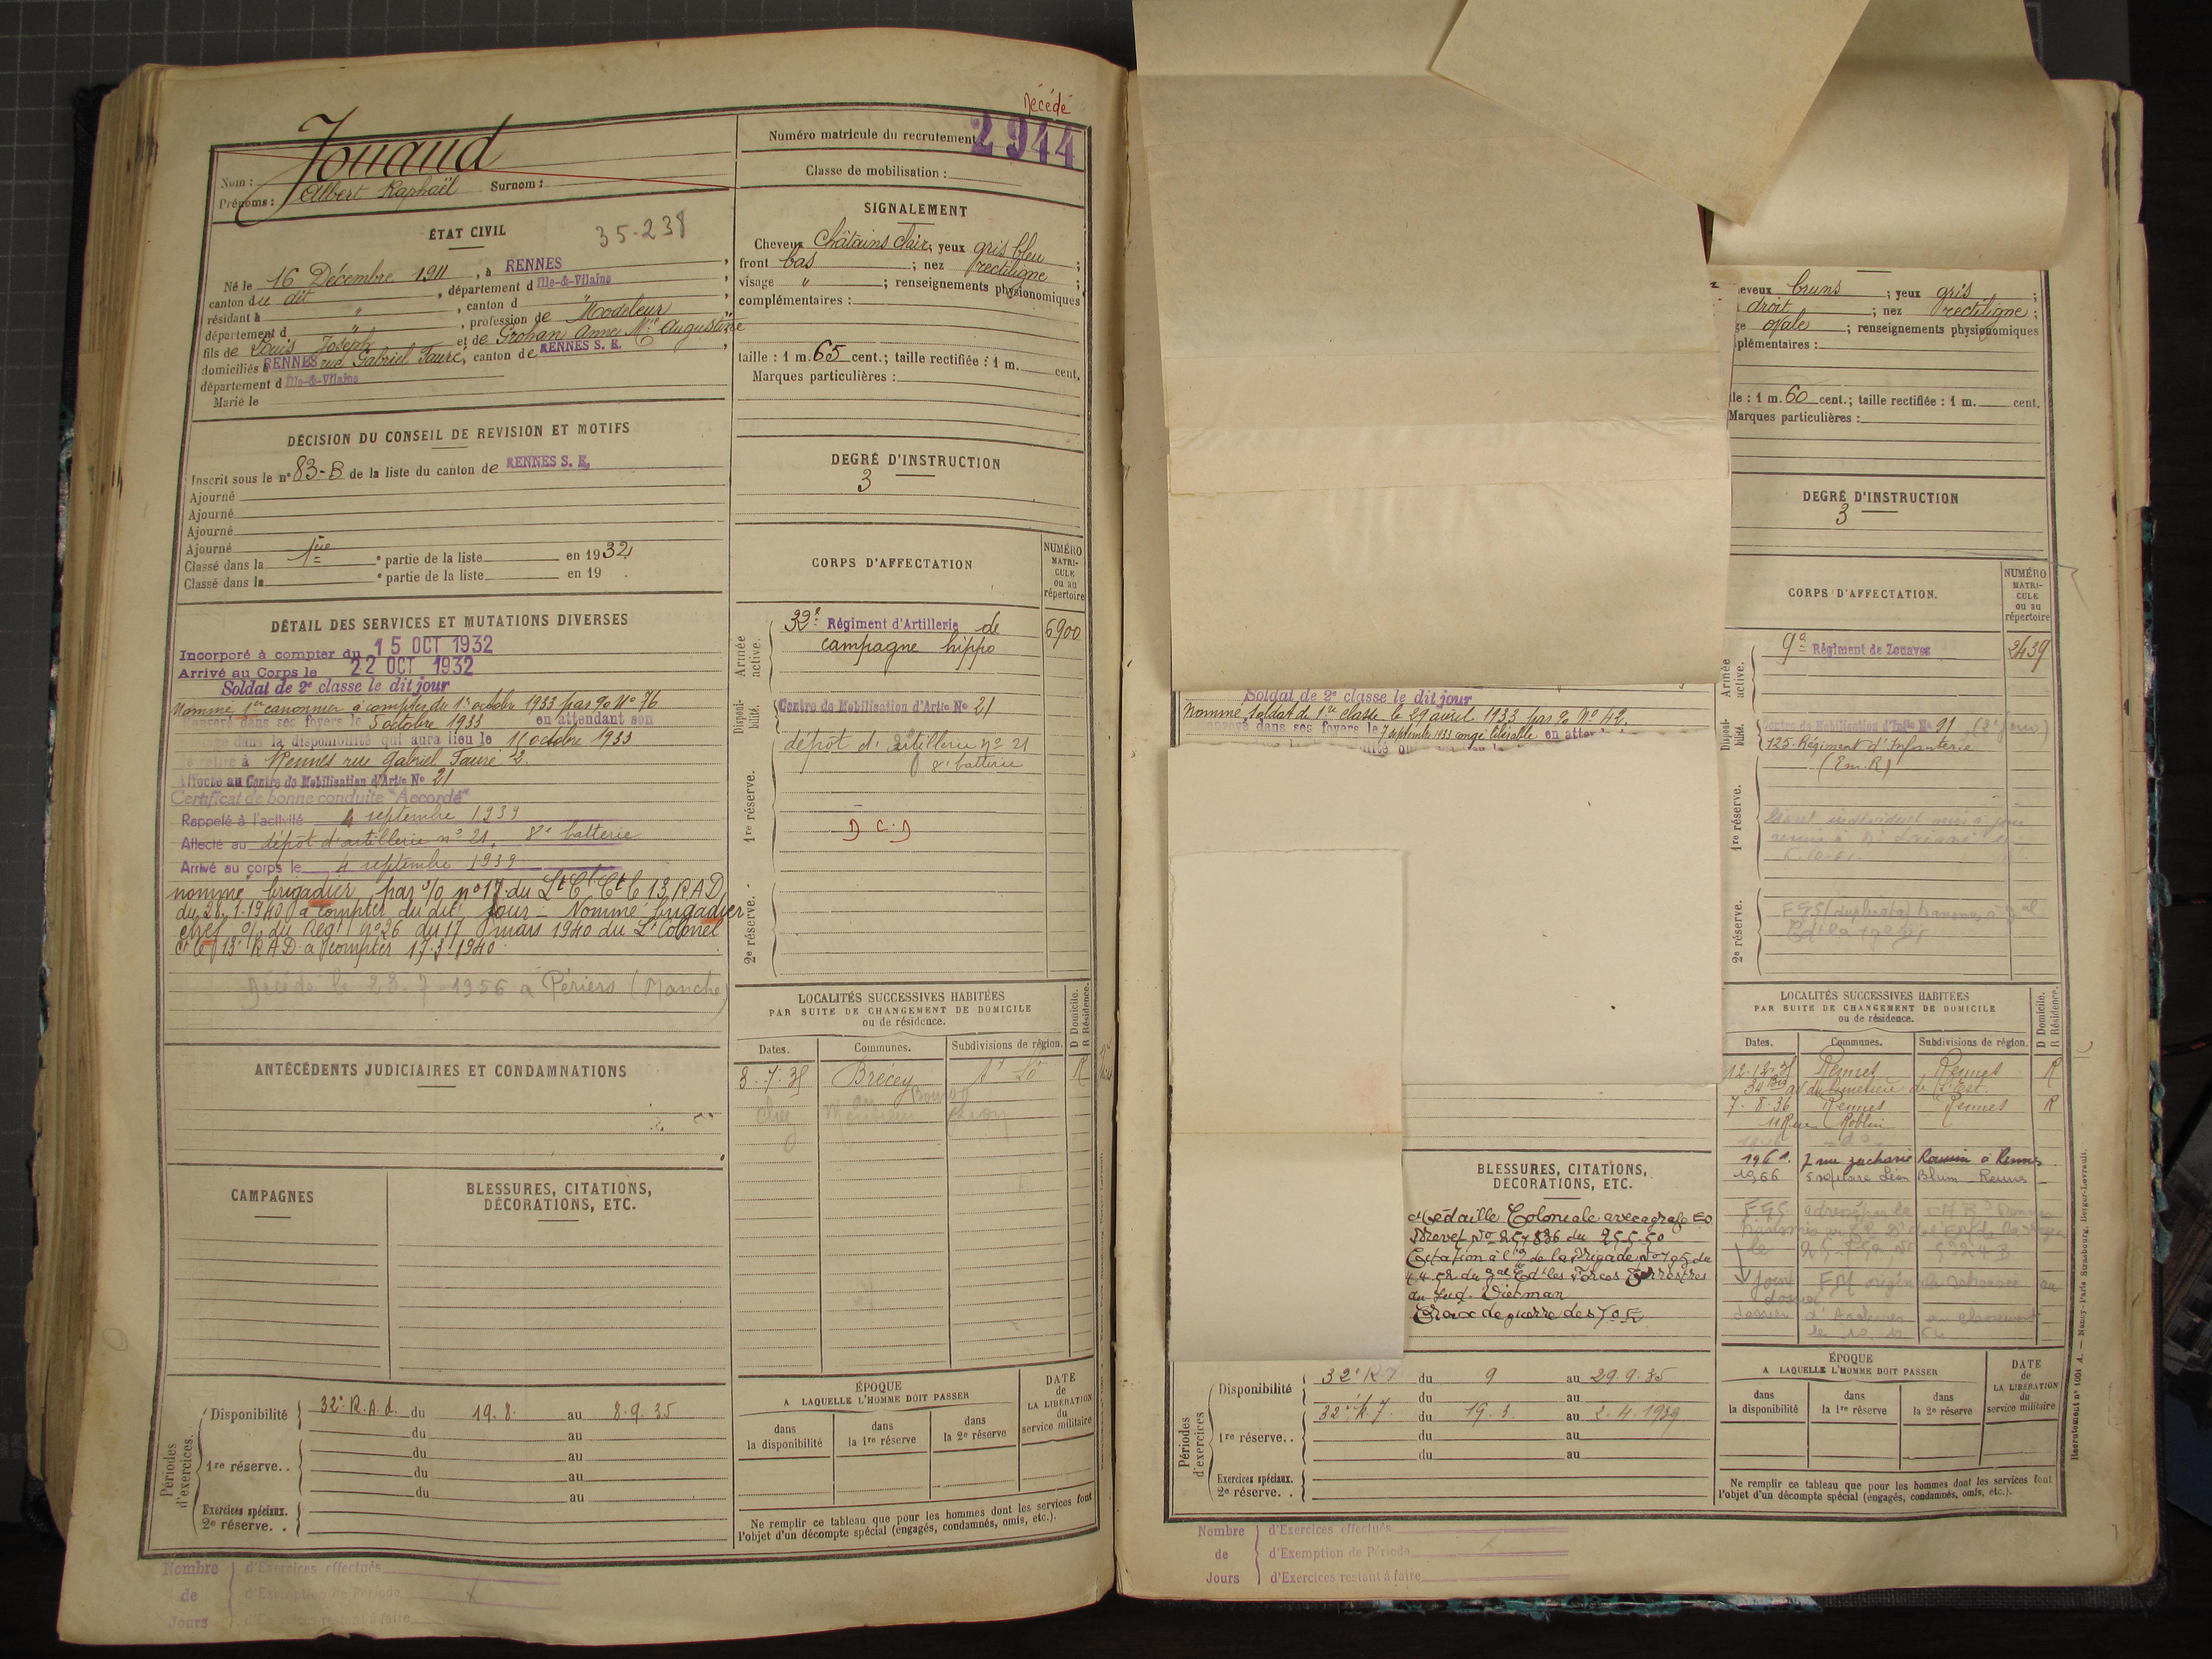 Décédé
Nom : Jouaud
Prénoms : Albert Raphaël Surnom :
Numéro matricule du recrutement 2944
Classe de mobilisation :
ÉTAT CIVIL
35-238
Né le 16 Décembre 1911, à RENNES,
canton du dit, département d Ille-&-Vilaine
résidant à ", canton d ",
département d ", profession de Modeleur
fils de Louis Joseph et de Grohan Anne Mie Augustine
domiciliés à RENNES rue Gabriel Fauré, canton de RENNES S. E.
département d Ille-&-Vilaine
Marié le
SIGNALEMENT
Cheveux Châtains clair; yeux gris bleu;
front bas; nez rectiligne;
visage "; renseignements physionomiques
complémentaires :
taille : 1 m. 65 cent.; taille rectifiée : 1 m. cent.
Marques particulières :
DÉCISION DU CONSEIL DE REVISION ET MOTIFS
Inscrit sous le n° 83-B de la liste du canton de RENNES S. E.
Ajourné
Ajourné
Ajourné
Ajourné
Classé dans la 1ère e partie de la liste en 1932
Classé dans la e partie de la liste en 19 .
DEGRÉ D'INSTRUCTION
3
DÉTAIL DES SERVICES ET MUTATIONS DIVERSES
Incorporé à compter du 15 OCT 1932
Arrivé au Corps le 22 OCT 1932
Soldat de 2e classe le dit jour
Nommé 1er canonnier à compter du 1er octobre 1933 pas 90 No 76
Renvoyé dans ses foyers le 5 octobre 1933 en attendant son
passage dans la disponibilité qui aura lieu le 15 octobre 1933
Se retire à Rennes rue Gabriel Fauré 2.
Affecté au Centre de Mobilisation d'Artie No 21
Certificat de bonne conduite "Accordé"
Rappelé à l'activité 4 septembre 1939
Affecté au dépôt d'artillerie no 21, 8e batterie
Arrivé au corps le 4 septembre 1939
nommé brigadier par o/o no 17 du Lt Cl Ct le 13 RAD
du 28.1.1940 à compter du dit jour - Nommé brigadier
chef o/ du Régt no 26 du 17 mars 1940 du Lt Colonel
Ct le 13e RAD à compter 17.3.1940
Décédé le 23.7.1956 à Périers (Manche)
CORPS D'AFFECTATION
NUMÉRO MATRICULE ou au répertoire
Armée active.
32e Régiment d'Artillerie de 6900
campagne hippo
Disponibilité.
Centre de Mobilisation d'Artie No 21
dépôt d'artillerie no 21
8e batterie
1re réserve.
D C D
2e réserve.
ANTÉCÉDENTS JUDICIAIRES ET CONDAMNATIONS
LOCALITÉS SUCCESSIVES HABITÉES
PAR SUITE DE CHANGEMENT DE DOMICILE
ou de résidence.
D Domicile.
R Résidence.
Dates. Communes. Subdivisions de région.
8.7.35 Brécey St Lô R
au Bourg
chez Monsieur
CAMPAGNES
BLESSURES, CITATIONS,
DÉCORATIONS, ETC.
Périodes d'exercices.
Disponibilité 32e R.A.d. du 19.8. au 8.9.35
du au
1re réserve.. du au
du au
du au
Exercices spéciaux.
2e réserve. .
ÉPOQUE
A LAQUELLE L'HOMME DOIT PASSER
dans la disponibilité
dans la 1re réserve
dans la 2e réserve
DATE de LA LIBÉRATION du service militaire
Ne remplir ce tableau que pour les hommes dont les services font
l'objet d'un décompte spécial (engagés, condamnés, omis, etc.).
Nombre de Jours
d'Exercices effectués
d'Exemption de Période
d'Exercices restant à faire
eveux bruns; yeux gris;
droit; nez rectiligne;
ge ovale; renseignements physionomiques
plémentaires :
le : 1 m. 60 cent.; taille rectifiée : 1 m. cent.
Marques particulières :
DEGRÉ D'INSTRUCTION
3
CORPS D'AFFECTATION.
NUMÉRO MATRICULE ou au répertoire
Armée active.
9e Régiment de Zouaves 2439
Disponibilité.
Centre de Mobilisation d'Infie No 91
125e Régiment d'Infanterie
(Em.R)
1re réserve.
Livret individuel mis à jour
2e réserve.
Soldat de 2e classe le dit jour
Nommé soldat de 1re classe le 29 avril 1933 pas 90 No 42.
envoyé dans ses foyers le 7 septembre 1933 congé libérable en atten
LOCALITÉS SUCCESSIVES HABITÉES
PAR SUITE DE CHANGEMENT DE DOMICILE
ou de résidence.
D Domicile.
R Résidence.
Dates. Communes. Subdivisions de région.
12.12.35 Rennes Rennes R
34 Bis av du Cimetière de l'Est.
7.8.36 Rennes Rennes R
11 Rue Roblin
1961. 7 rue Zacharie Roussin à Rennes
1966 5 square Léon Blum Rennes
BLESSURES, CITATIONS,
DÉCORATIONS, ETC.
Médaille Coloniale avec agrafe EO
Brevet No 257836 du 25.5.50
Citation à l'o de la Brigade No 795 du
4.4.52 du Gal Cdt les Forces Terrestres
au Sud. Vietnam
Croix de guerre des T.O.E.
Périodes d'exercices
Disponibilité 32e R.I du 9 au 29.9.35
du au
1re réserve.. 32e R.I. du 19.3. au 2.4.1939
du au
du au
Exercices spéciaux.
2e réserve. .
ÉPOQUE
A LAQUELLE L'HOMME DOIT PASSER
dans la disponibilité
dans la 1re réserve
dans la 2e réserve
DATE de LA LIBÉRATION du service militaire
Ne remplir ce tableau que pour les hommes dont les services font
l'objet d'un décompte spécial (engagés, condamnés, omis, etc.).
Nombre de Jours
d'Exercices effectués
d'Exemption de Période
d'Exercices restant à faire
Recrutement N° 1001 A. — Nancy-Paris Strasbourg, Berger-Levrault.